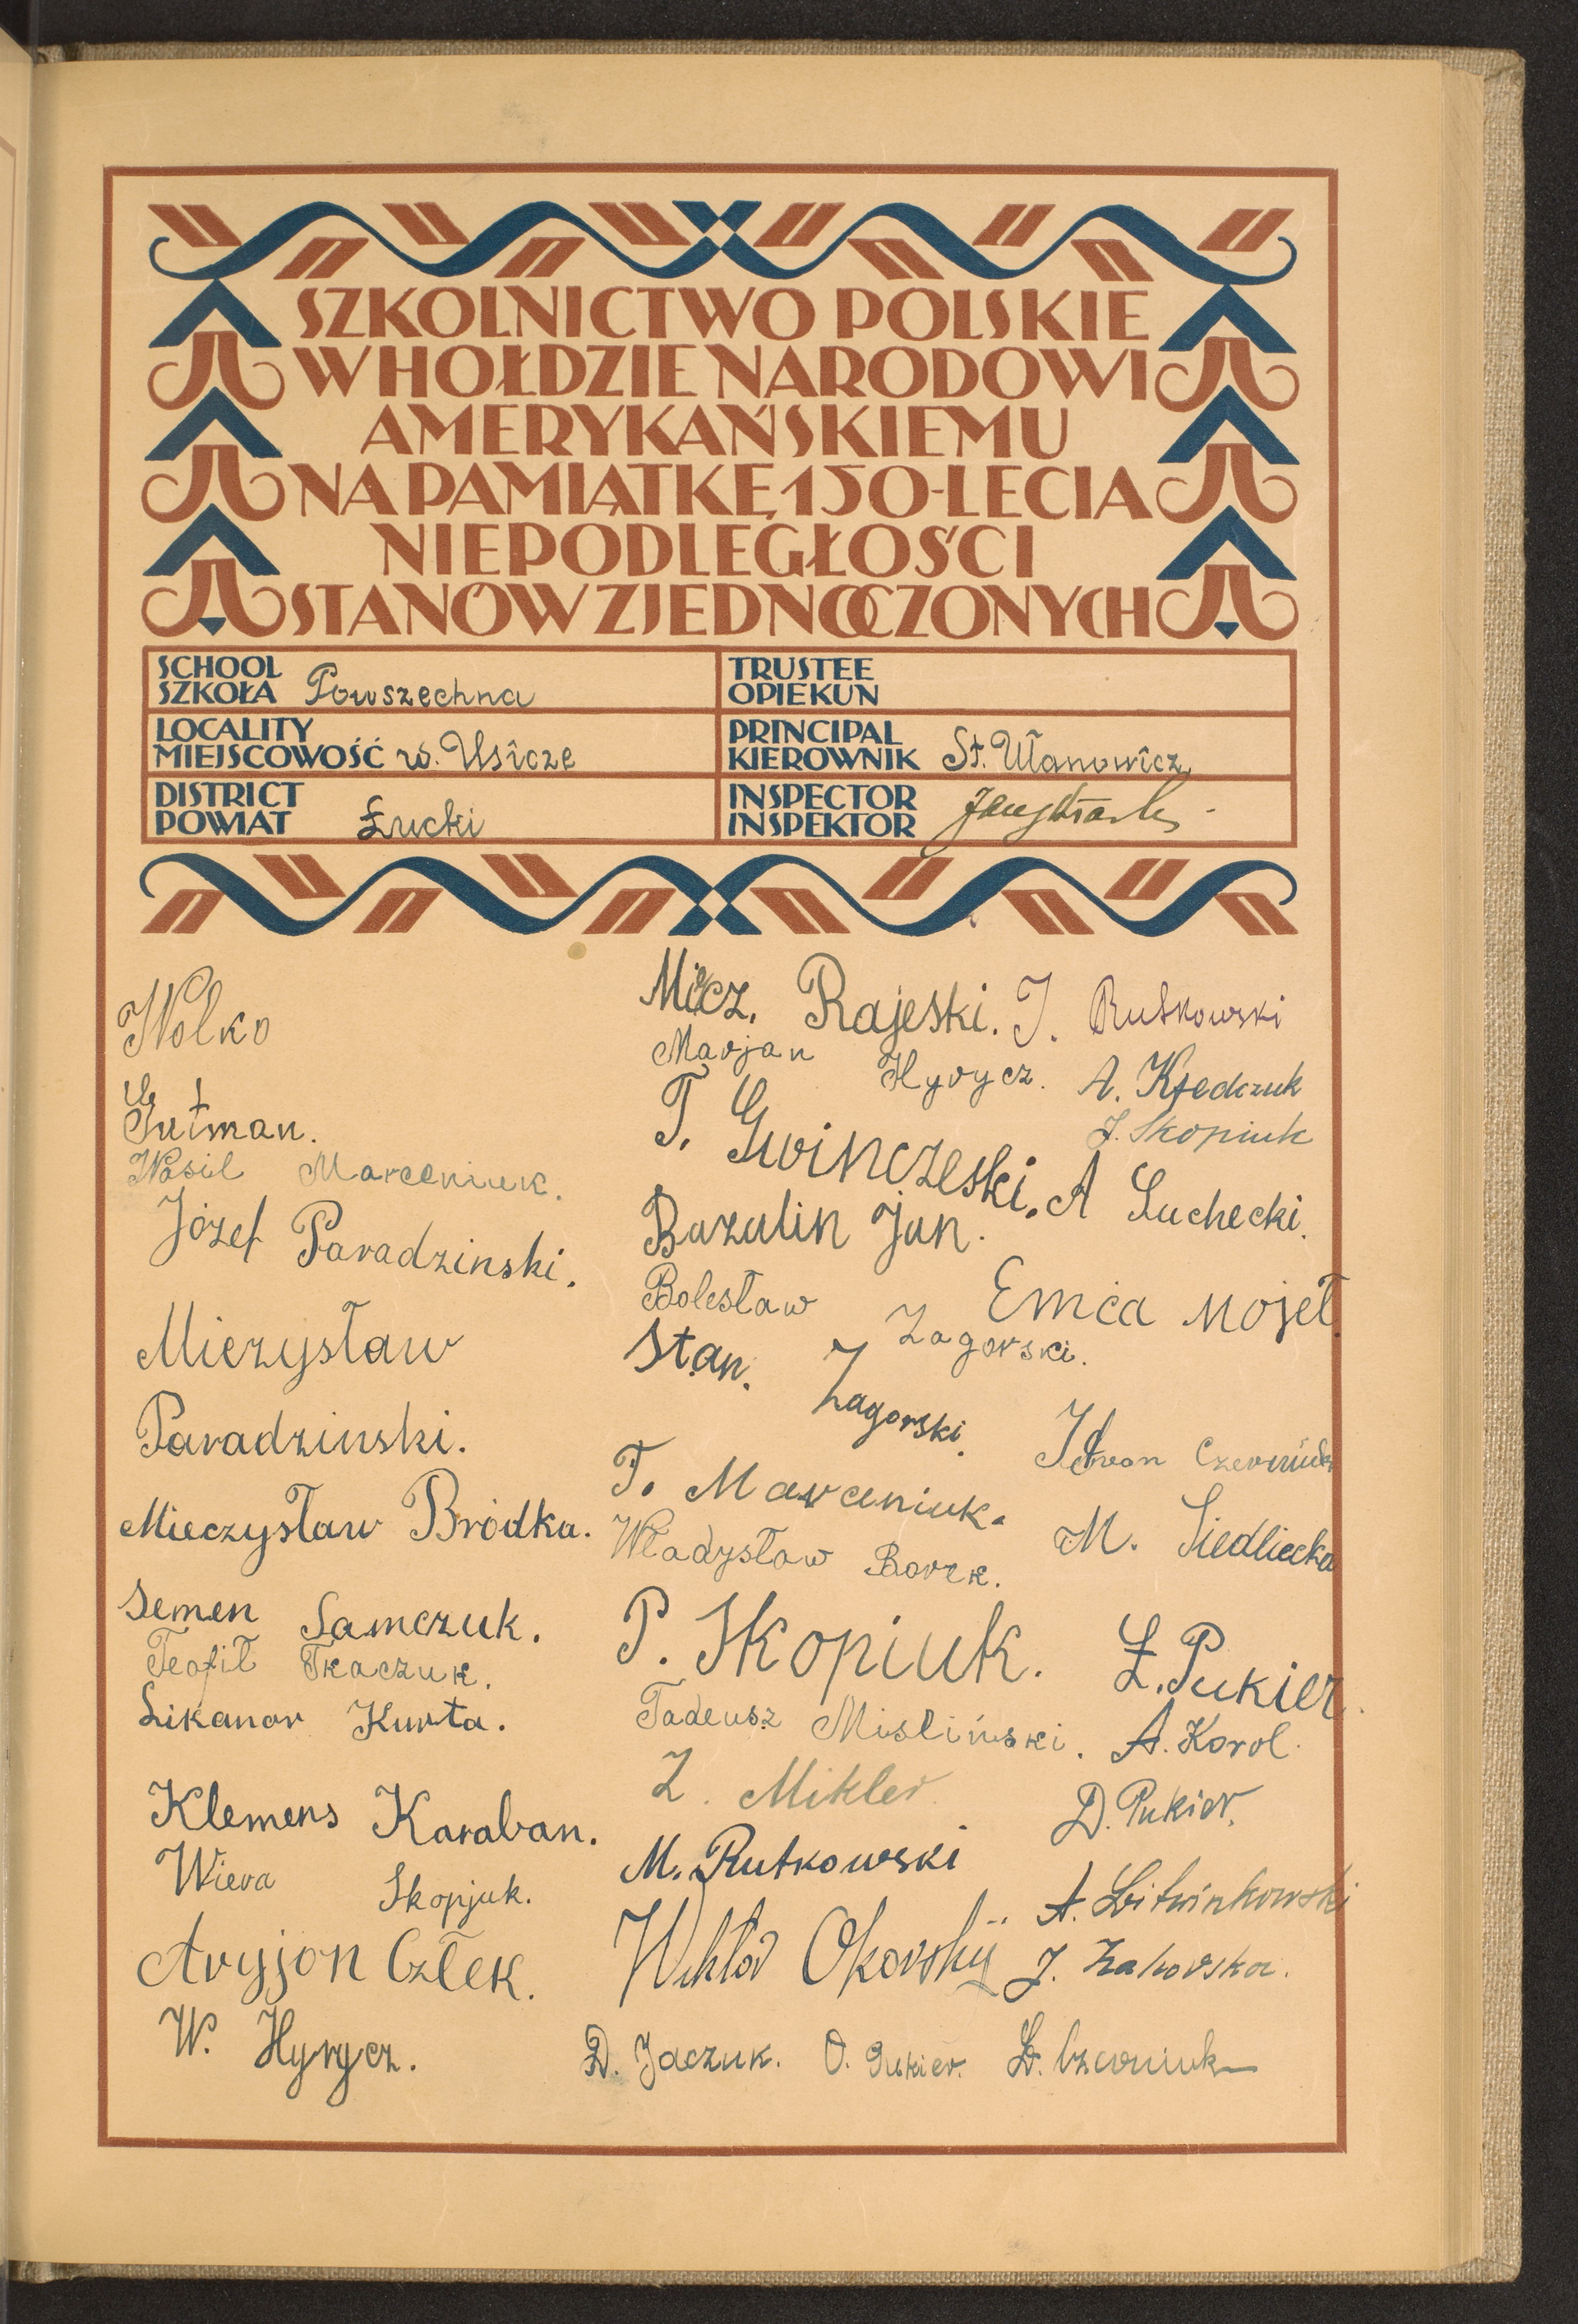 SZKOLNICTWO POLSKIE
W HOŁDZIE NARODOWI
AMERYKAŃSKIEMU
NA PAMIĄTKĘ 150-LECIA
NIEPODLEGŁOŚCI
STANÓW ZJEDNOCZONYCH
SCHOOL
SZKOŁA Powszechna
TRUSTEE
OPIEKUN
LOCALITY
MIEJSCOWOŚĆ w. Usicze
PRINCIPAL
KIEROWNIK St. Ułanowicz
DISTRICT
POWIAT Łucki
INSPECTOR
INSPEKTOR
Wolko
Gutman.
Wasil Marceniuk.
Józef Paradzinski.
Miezysław
Paradzinski.
Mieczysław Bródka.
Semen Samczuk.
Teofil Tkaczuk.
Likanor Kurta.
Klemens Karaban.
Wiera Skopjuk.
Aryjon Człek.
W. Hyrycz.
Miecz. Rajeski.
Marjan Hyrycz.
T. Gwinczeski.
Bazulin Jan.
Bolesław Zagorski.
Stan. Zagorski.
T. Marceniuk.
Władysław Borek.
P. Skopiuk.
Tadeusz Misliński.
Z. Mikler.
M. Rutkowski
Wiktor Okorskij
D. Jaczuk. O. Pukier. D. Czerniuk
J. Rutkowski
A. Kredczuk
J. Skopiuk
A Suchecki.
Emća Mojet.
Iwan Czerniuk
M. Siedliecka
Ł. Pukier.
A. Korol.
D. Pukier.
A. Litwinkowski
J. Zakorska.